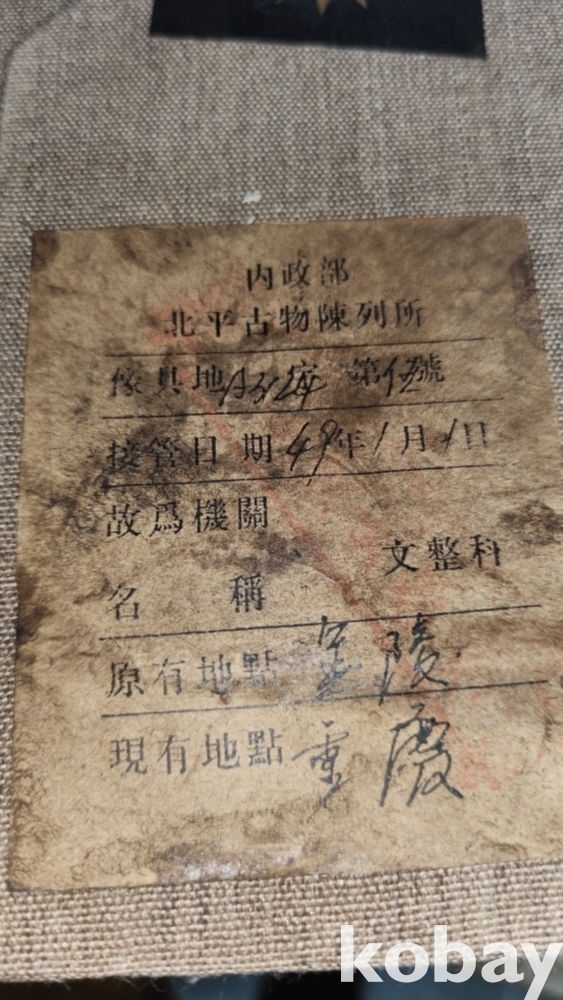 内政部
北平古物陳列所
傢具地 第伍號
接管日期49年1月1日
故爲機關
文整科
名 稱
原有地點定陵
現有地點重慶
kobay